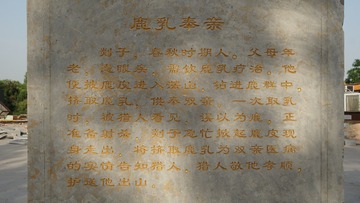 鹿乳奉亲
剡子，春秋时期人。父母年
老，患眼疾，需饮鹿乳疗治。他
便披鹿皮进入深山，钻进鹿群中，
挤取鹿乳，供奉双亲。一次取乳
时，被猎人看见，误以为鹿，正
准备射杀，剡子急忙掀起鹿皮现
身走出，将挤取鹿乳为双亲医病
的实情告知猎人，猎人敬他孝顺，
护送他出山。